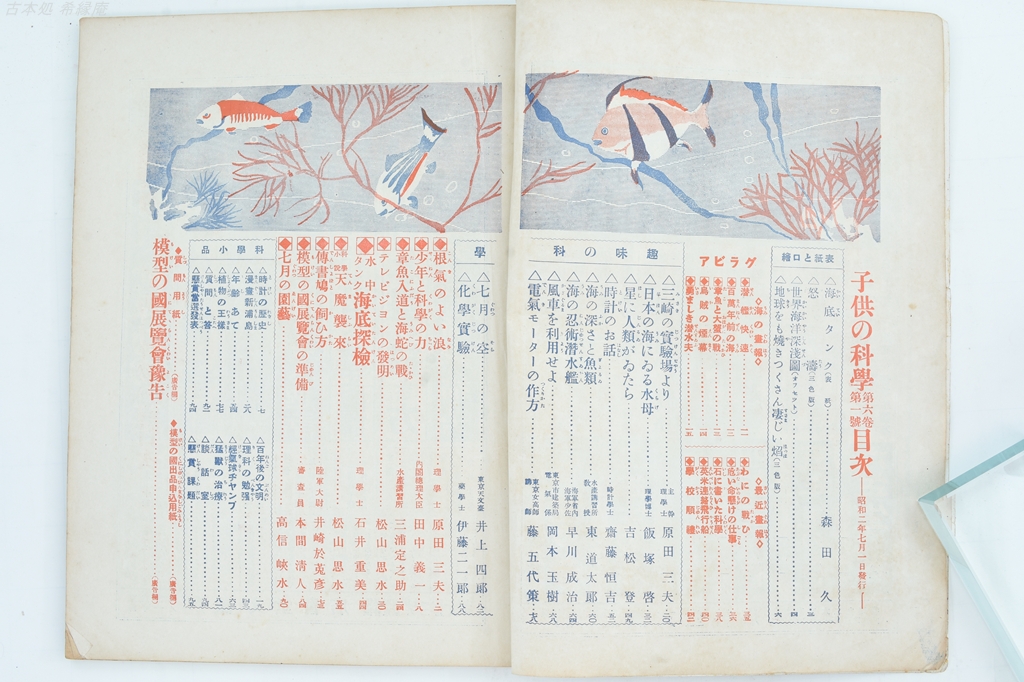 古本処 希縁庵
子供の科學 第六卷 第一號 目次 ―昭和二年七月一日發行―
表紙と口繪
△海底タンク(表紙) 森田久
△怒濤(三色版) 三
△世界海洋深淺圖(オフセット) 五
△地球をも燒きつくさん凄じい焰(三色版) 六
グラビア
◇海の畫報◇
◆潛艦快速 一
◆百萬年前の海 二
◆章魚と大蟹の戰 三
◆烏賊の煙幕 四
◆勇ましき潛水夫 五
◇最近畫報◇
◆わにの戰ひ
◆危い命懸けの仕事
◆石に書いた科學
◆英米連絡飛行船
◆學校順禮
趣味の科學
△三崎の實驗場より 主幹 理學士 原田三夫
△日本の海にゐる水母 理學博士 飯塚啓
△星に人類がゐたら 吉松登
△時計のお話 時計學士 齋藤恒吉
△海の深さと魚類 水產講習所敎授 東道太郎
△海の忍術潛水艦 海軍省內 海軍少佐 早川成治
△風車を利用せよ 東京市電氣局 岡本玉樹
△電氣モーターの作方 東京女高師講師 藤五代策
△七月の空 東京天文臺 井上四郎
△化學實驗 藥學士 伊藤二一郎
◆根氣のよい浪 理學士 原田三夫
◆少年と科學の力 內閣總理大臣 田中義一
◆章魚入道と海蛇の戰 水產講習所 三浦定之助
◆テレビジョンの發明 松山思水
◆水中タンク 海底探檢 理學士 石井重美
◆科學小說 天魔襲來 松山思水
◆傳書鳩の飼ひ方 陸軍大尉 井崎於菟彥
◆模型の國展覽會の準備 審査員 本間淸人
◆七月の園藝 高信峽水
科學小品
△時計の歷史 七
△漫畫新浦島
△年齡あて
△植物の王樣
△質問と答
△懸賞當選發表
△百年後の文明
△理科の勉强
△輕氣球チャンプ
△猛獸の治療
△談話室
△懸賞課題
◆質問用紙 (廣告欄)
◆模型の國出品申込用紙 (廣告欄)
模型の國展覽會豫告 (廣告欄)